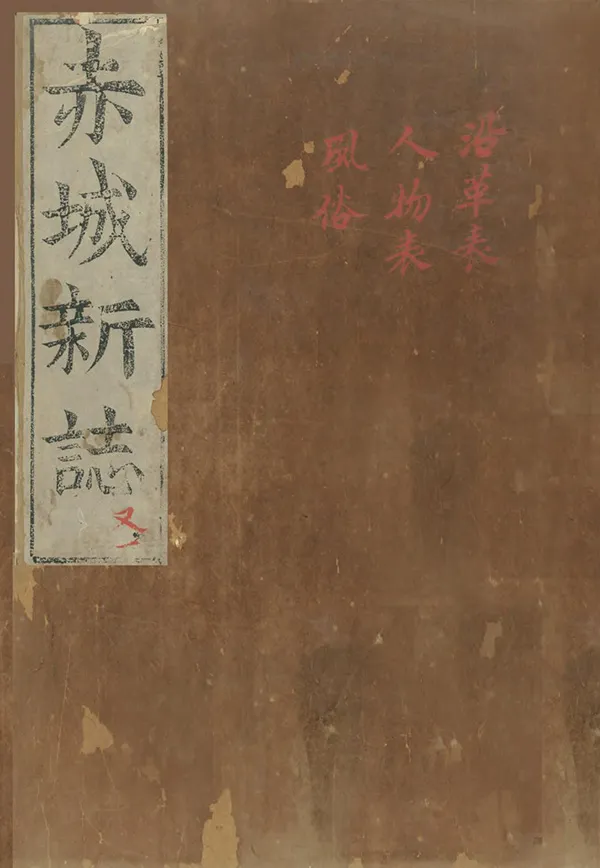 沿革表
人物表
風俗
赤城新誌